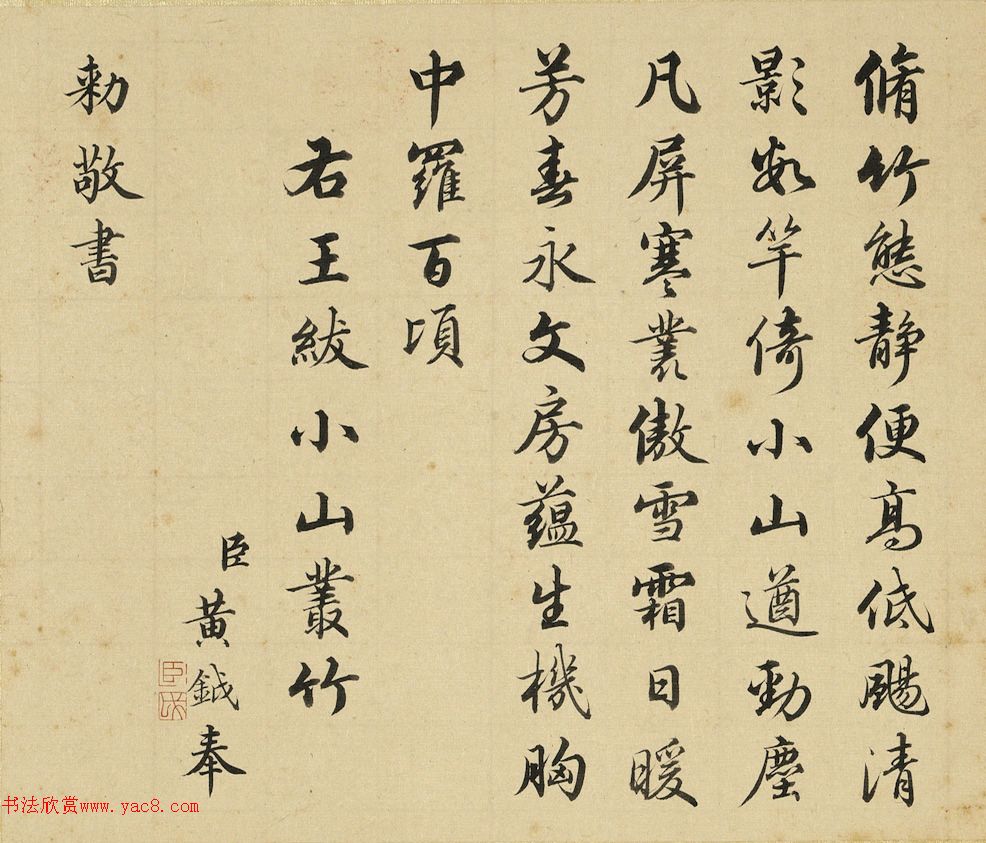 脩竹態静便髙低颺清
影數竿倚小山遒勁塵
凡屏寒叢傲雪霜日暖
芳春永文房蘊生機胸
中羅百頃
右王紱小山叢竹
臣黃鉞奉
勅敬書
书法欣赏www.yac8.com